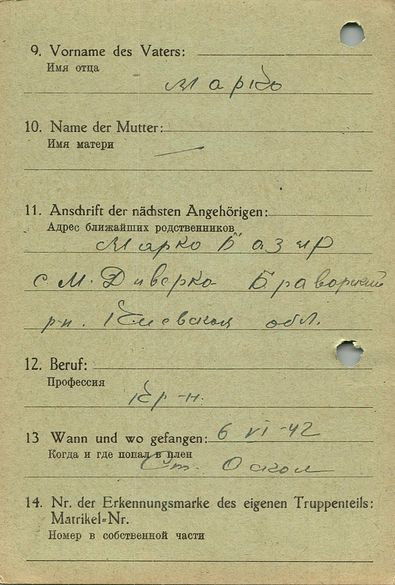 9. Vorname des Vaters:
Имя отца
Марко
10. Name der Mutter:
Имя матери
—
11. Anschrift der nächsten Angehörigen:
Адрес ближайших родственников
Марко Базир
с М. Диверка Браворский
рн. Киевская обл.
12. Beruf:
Профессия
кр-н.
13 Wann und wo gefangen: 6 VI-42
Когда и где попал в плен
Ст. Оскол
14. Nr. der Erkennungsmarke des eigenen Truppenteils:
Matrikel=Nr.
Номер в собственной части